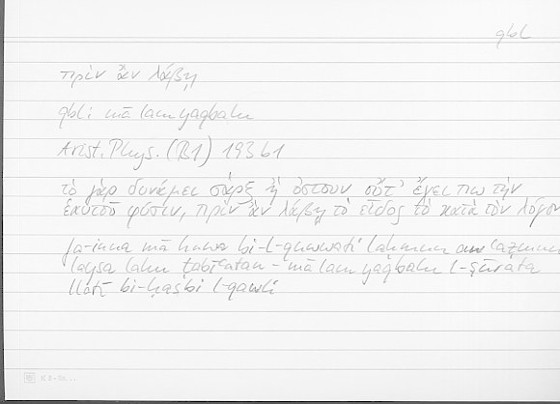 qbl
πρὶν ἂν λάβῃ
qbli mā lam yaqbalu
Arist. Phys. (B1) 193b1
τὸ γὰρ δυνάμει σὰρξ ἢ ὀστοῦν οὔτ' ἔχει πω τὴν
ἑαυτοῦ φύσιν, πρὶν ἂν λάβῃ τὸ εἶδος τὸ κατὰ τὸν λόγον
fa-inna mā huwa bi-l-quwwati laḥmun aw ʿaẓmun
laysa lahu ṭabīʿatan - mā lam yaqbalu l-ṣūrata
llātī bi-ḥasbi l-qawli